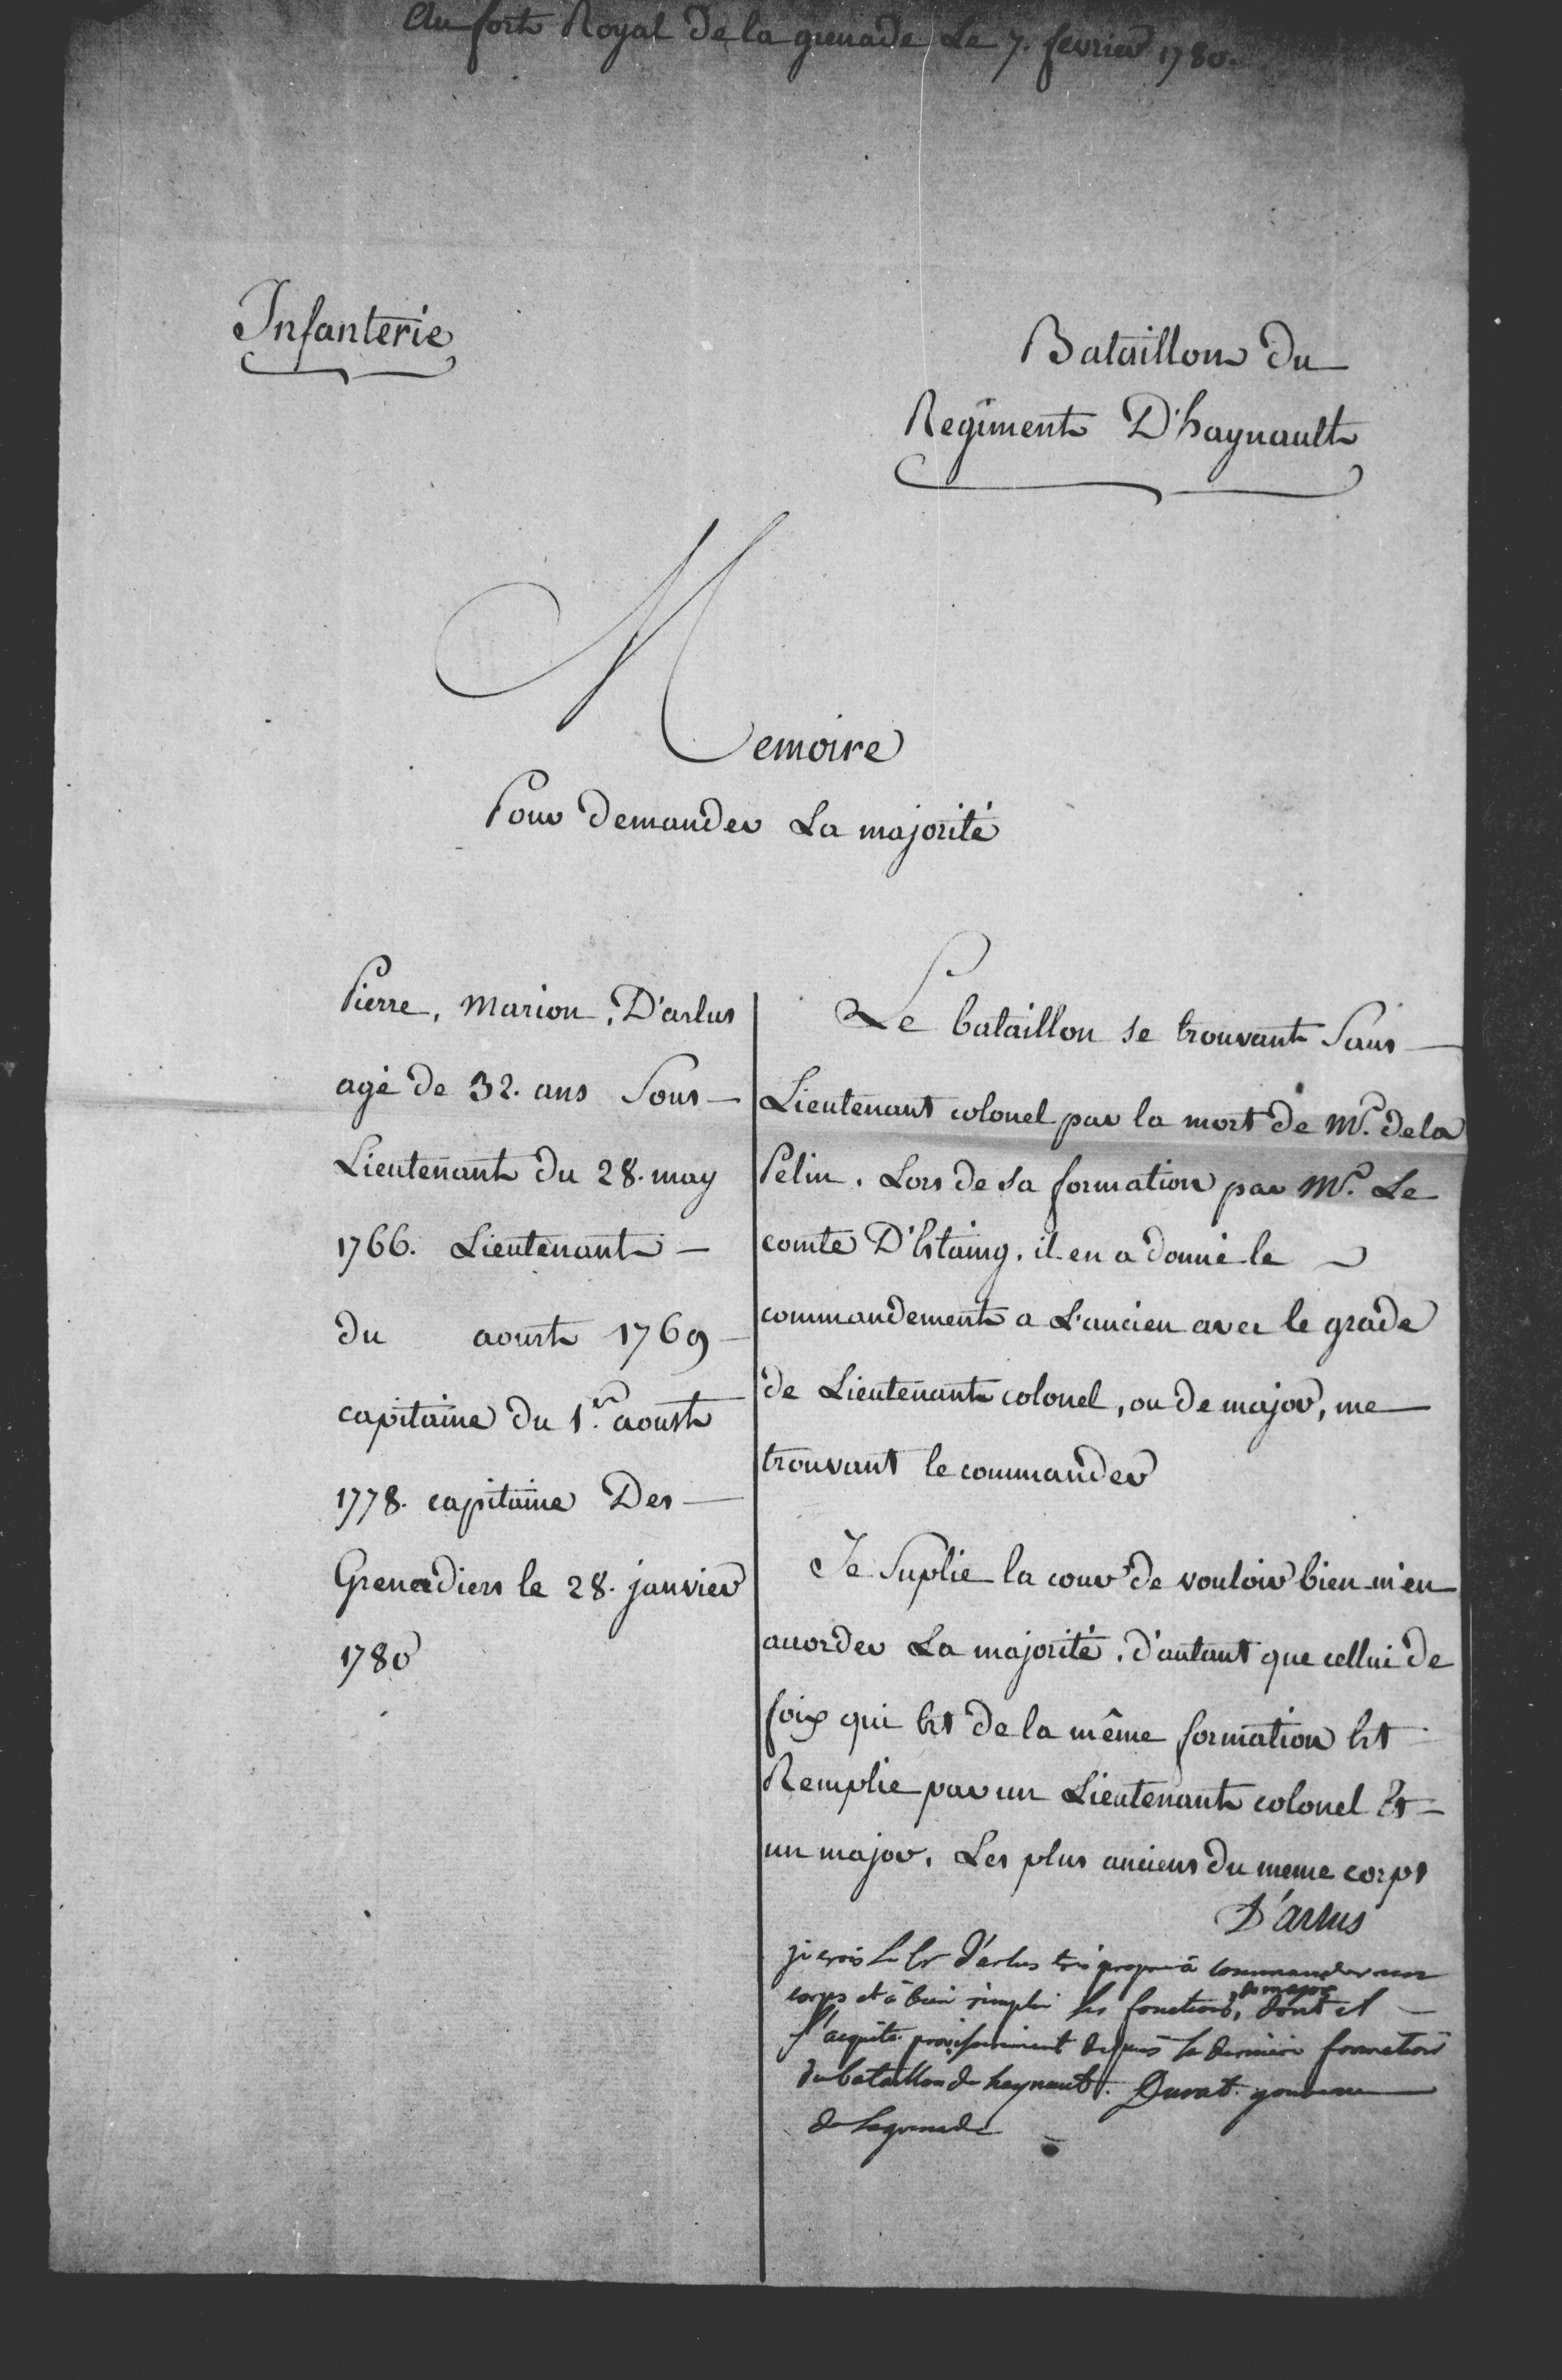 Au fort Royal de la grenade Le 7. fevrier 1780.
Infanterie
Bataillon du
Regiment D'haynault
Memoire
Pour demander La majorité
Pierre, Marion, D'arlus
agé de 32. ans Sous
Lieutenant du 28. may
1766. Lieutenant
du aoust 1769
capitaine du 1.er aoust
1778. capitaine Des
Grenadiers le 28. janvier
1780
Le bataillon se trouvant Sans
Lieutenant colonel par la mort de Mr. de la
Pelin. Lors de sa formation par Mr. Le
comte D'Estaing, il en a donné le
commandement a L'ancien avec le grade
de Lieutenant colonel, ou de major, me
trouvant le commander
Je Suplie la cour de vouloir bien m'en
accorder La majorité. d'autant que cellui de
foix qui Est de la même formation Est
Remplie par un Lieutenant colonel Et
un major. Les plus anciens du meme corps
D'arlus
je crois le Sr d'arlus très propre à commander un
corps et à bien remplir les fonctions de major, dont il
s'acquite provisoirement depuis la derniere formation
du bataillon de haynault. Durat gouverneur
de la grenade